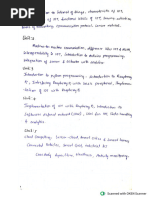 Introduction to Internet of things, characteristics of IOT,
of IOT, functional blocks of IOT,
communication protocol,
Unit 2
Machine to machine communication, difference b/w IOT & M2M,
Interoperability in IOT, Introduction to Arduino programming,
Integration of Sensor & Actuator with Arduino
Unit 3
Introduction to python programming, Introduction to Raspberry
Pi, Interfacing Raspberry Pi with basic peripherals, Implemen-
tation of IOT with Raspberry Pi
Unit 4
Implementation of IOT with Raspberry Pi, Introduction to
Software defined network (SDN), SDN for IOT, Data Handling
and
Unit 5
Cloud Computing, Sensor-Cloud
Connected Vehicles, Smart Grid, Industrial IOT
Case study: Agriculture, Healthcare, Activity monitoring.
Scanned with OKEN Scanner